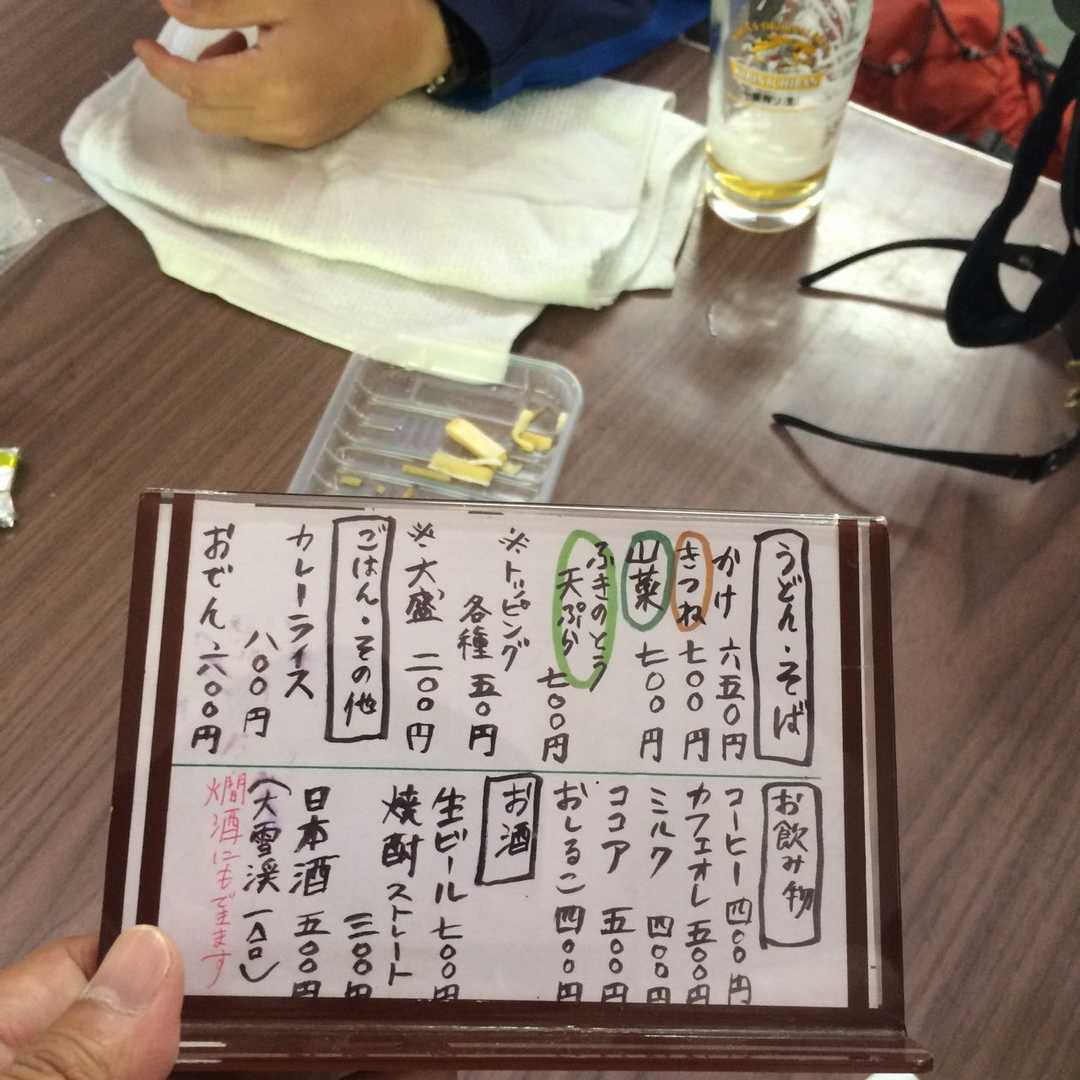 うどん・そば
かけ 六五〇円
きつね 七〇〇円
山菜 七〇〇円
ふきのとう
天ぷら
七〇〇円
※トッピング
各種 五〇円
※大盛 二〇〇円
ごはん・その他
カレーライス
八〇〇円
おでん 六〇〇円
お飲み物
コーヒー 四〇〇円
カフェオレ 五〇〇円
ミルク 四〇〇円
ココア 五〇〇円
おしるこ 四〇〇円
お酒
生ビール 七〇〇円
焼酎 ストレート
三〇〇円
日本酒 五〇〇円
(大雪渓 一合)
燗酒にもできます